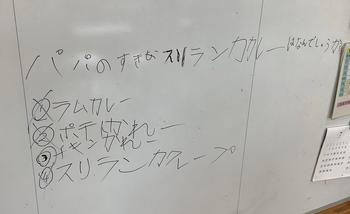 パパのすきなスリランカカレーはなんでしょうか
①ラムカレー
②ポテトかれー
③チキンかれー
④スリランカクレープ